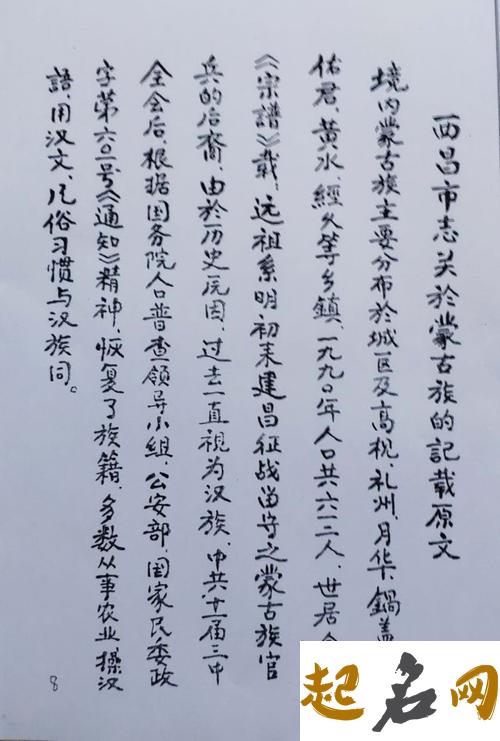 西昌市志关於蒙古族的記载原文
境内蒙古族主要分布於城区及高枧、礼州、月华、鍋盖
佑君、黄水、經久等乡鎮、一九九〇年人口共六一三人、世居
《宗譜》載、远祖系明初来建昌征战留守之蒙古族官
兵的后裔、由於历史原因、过去一直視为汉族、中共十一届三中
全会后、根据国务院人口普查领导小组、公安部、国家民委政
字第六〇一号《通知》精神、恢复了族籍、多数从事农业操汉
語、用汉文、风俗习慣与汉族同。
8
起名网